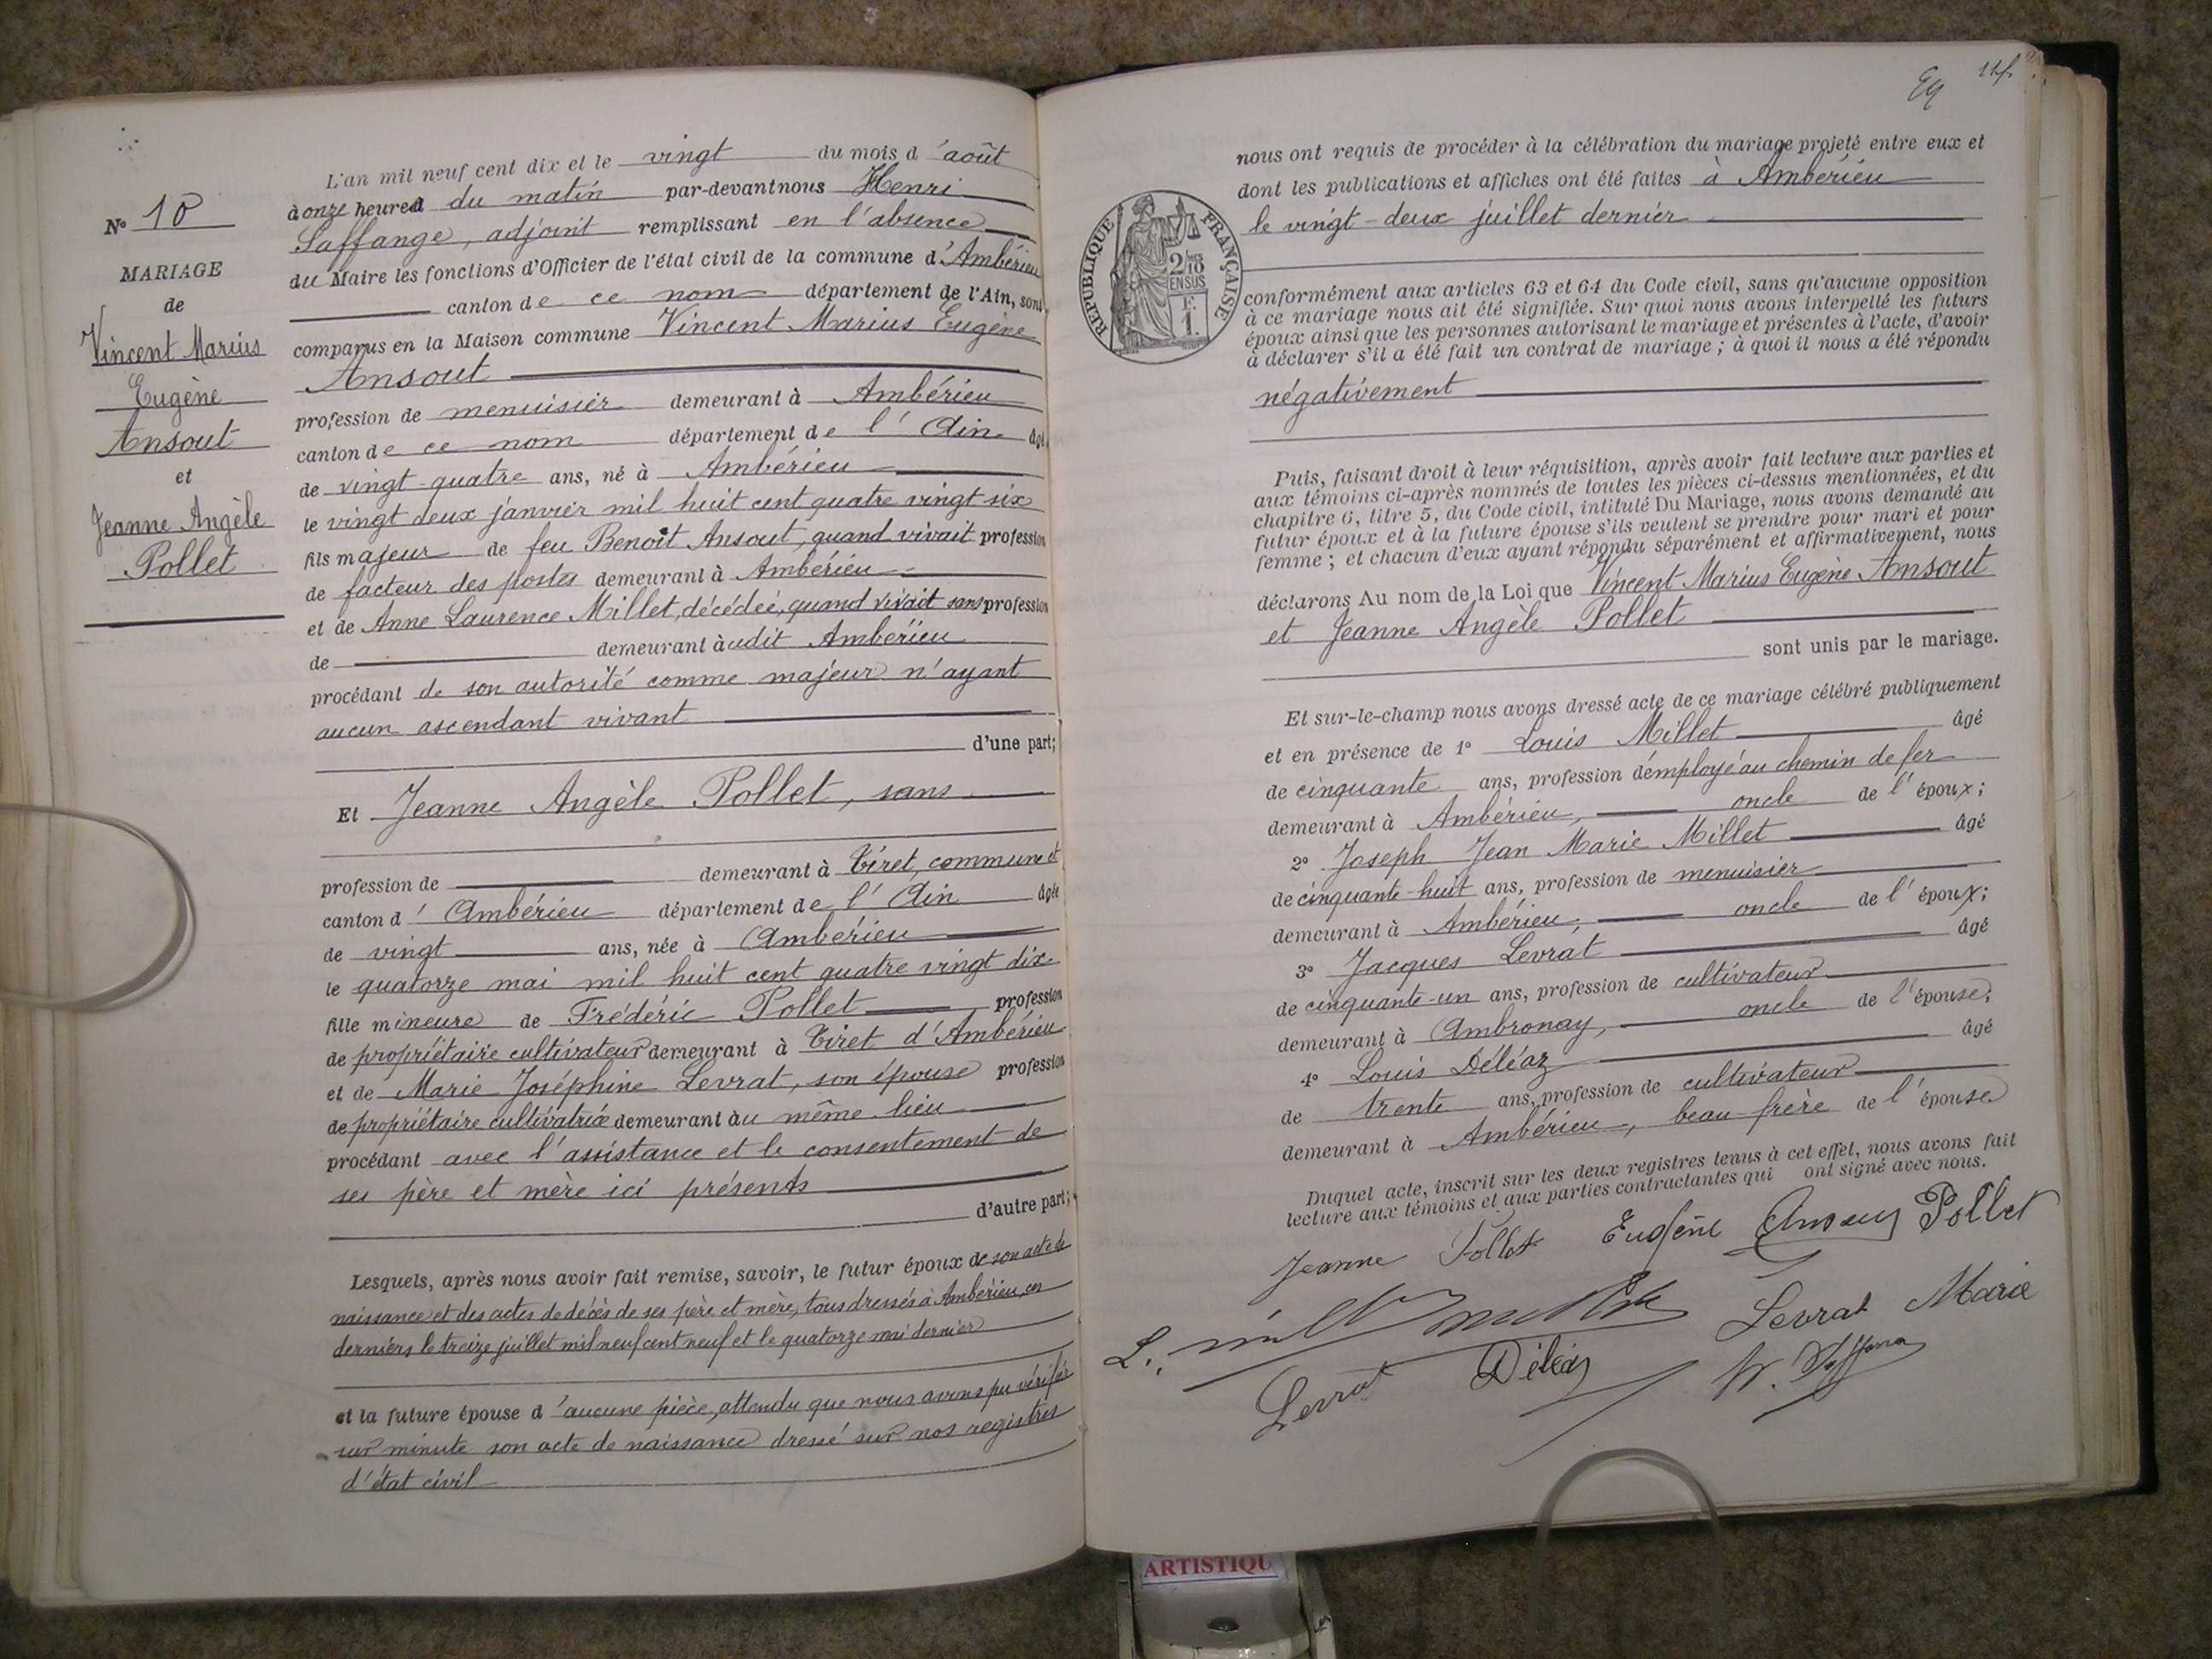 N° 10
MARIAGE
de
Vincent Marius
Eugène
Ansout
et
Jeanne Angèle
Pollet
L'an mil neuf cent dix et le vingt du mois d'août
à onze heures du matin par-devant nous Henri
Laffange, adjoint remplissant en l'absence
du Maire les fonctions d'Officier de l'état civil de la commune d'Ambérieu
canton de ce nom département de l'Ain, sont
comparus en la Maison commune Vincent Marius Eugène
Ansout
profession de menuisier demeurant à Ambérieu
canton de ce nom département de l'Ain âgé
de vingt-quatre ans, né à Ambérieu
le vingt deux janvier mil huit cent quatre vingt-six
fils majeur de feu Benoît Ansout, quand vivait profession
de facteur des postes demeurant à Ambérieu
et de Anne Laurence Millet, décédée, quand vivait sans profession
de demeurant audit Ambérieu
procédant de son autorité comme majeur n'ayant
aucun ascendant vivant
d'une part;
Et Jeanne Angèle Pollet, sans
profession de demeurant à Tiret, commune et
canton d'Ambérieu département de l'Ain âgée
de vingt ans, née à Ambérieu
le quatorze mai mil huit cent quatre vingt dix
fille mineure de Frédéric Pollet profession
de propriétaire cultivateur demeurant à Tiret d'Ambérieu
et de Marie Joséphine Levrat, son épouse profession
de propriétaire cultivatrice demeurant au même lieu
procédant avec l'assistance et le consentement de
ses père et mère ici présents
d'autre part;
Lesquels, après nous avoir fait remise, savoir, le futur époux de son acte de
naissance et des actes de décès de ses père et mère, tous dressés à Ambérieu, ces
derniers le treize juillet mil neuf cent neuf et le quatorze mai dernier
et la future épouse d'aucune pièce, attendu que nous avons pu vérifier
sur minute son acte de naissance dressé sur nos registres
d'état civil
nous ont requis de procéder à la célébration du mariage projeté entre eux et
dont les publications et affiches ont été faites à Ambérieu
le vingt-deux juillet dernier
RÉPUBLIQUE FRANÇAISE
2/10
EN SUS
F.
1.
conformément aux articles 63 et 64 du Code civil, sans qu'aucune opposition
à ce mariage nous ait été signifiée. Sur quoi nous avons interpellé les futurs
époux ainsi que les personnes autorisant le mariage et présentes à l'acte, d'avoir
à déclarer s'il a été fait un contrat de mariage ; à quoi il nous a été répondu
négativement
Puis, faisant droit à leur réquisition, après avoir fait lecture aux parties et
aux témoins ci-après nommés de toutes les pièces ci-dessus mentionnées, et du
chapitre 6, titre 5, du Code civil, intitulé Du Mariage, nous avons demandé au
futur époux et à la future épouse s'ils veulent se prendre pour mari et pour
femme ; et chacun d'eux ayant répondu séparément et affirmativement, nous
déclarons Au nom de la Loi que Vincent Marius Eugène Ansout
et Jeanne Angèle Pollet
sont unis par le mariage.
Et sur-le-champ nous avons dressé acte de ce mariage célébré publiquement
et en présence de 1° Louis Millet âgé
de cinquante ans, profession d'employé au chemin de fer
demeurant à Ambérieu, oncle de l'époux ;
2° Joseph Jean Marie Millet âgé
de cinquante-huit ans, profession de menuisier
demeurant à Ambérieu, oncle de l'époux ;
3° Jacques Levrat âgé
de cinquante-un ans, profession de cultivateur
demeurant à Ambronay, oncle de l'épouse ;
4° Louis Déléaz âgé
de trente ans, profession de cultivateur
demeurant à Ambérieu, beau-frère de l'épouse
Duquel acte, inscrit sur les deux registres tenus à cet effet, nous avons fait
lecture aux témoins et aux parties contractantes qui ont signé avec nous.
Jeanne Pollet Eugène Ansout Pollet
L. Millet Levrat Marie
Levrat Déléaz
ARTISTIQU